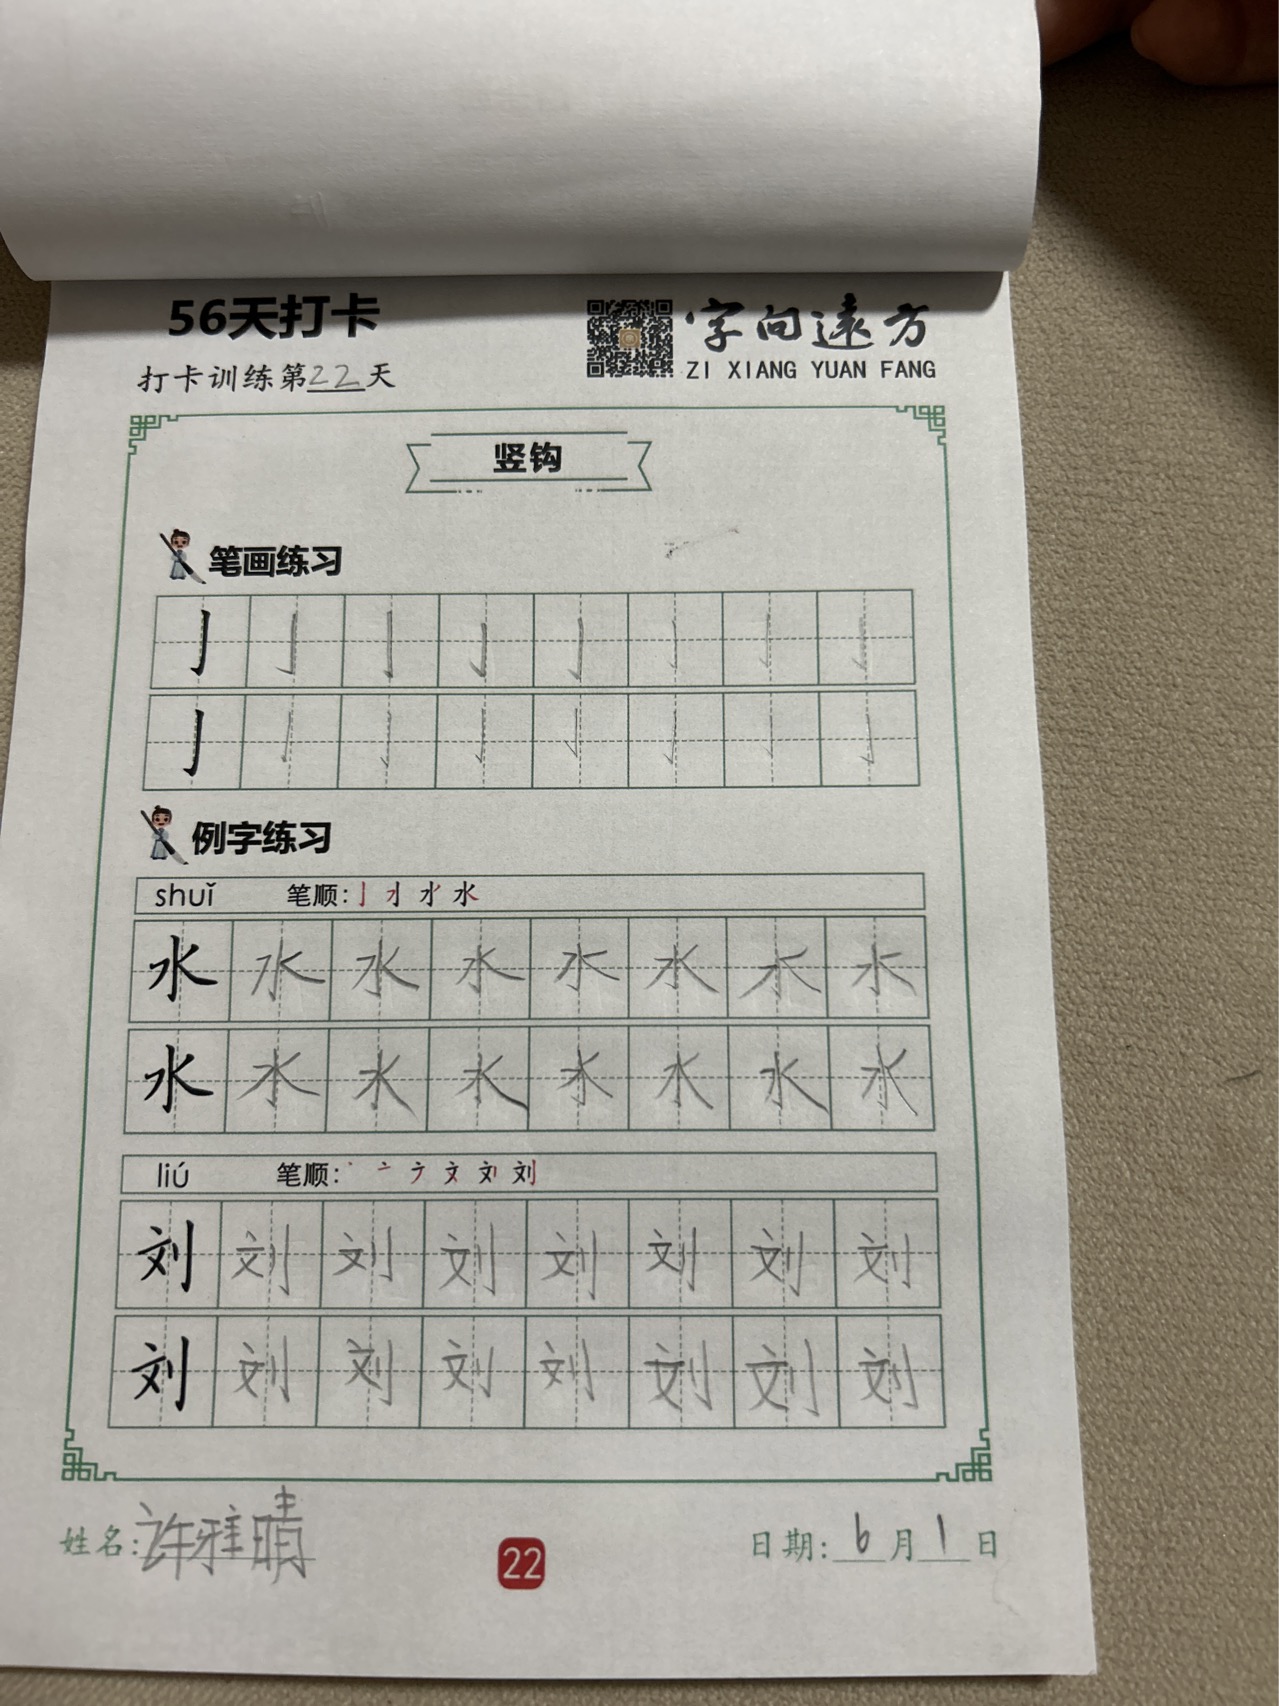 56天打卡
字向遠方
打卡训练第22天
ZI XIANG YUAN FANG
竖钩
笔画练习
亅亅亅亅亅亅亅亅
亅亅亅亅亅亅亅亅
例字练习
shuǐ 笔顺: 亅 水
水水水水水水水水
水水水水水水水水
liú 笔顺: 丶 亠 ナ 文 刘
刘刘刘刘刘刘刘刘
刘刘刘刘刘刘刘刘
姓名:许雅晴
22
日期:6月1日